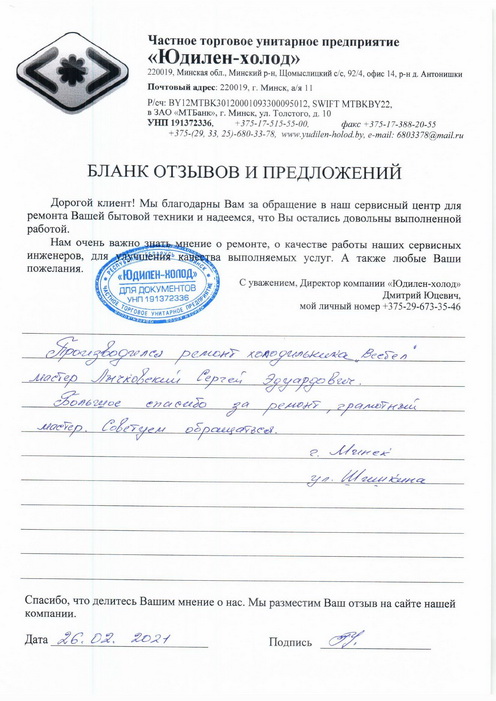 Частное торговое унитарное предприятие
«Юдилен-холод»
220019, Минская обл., Минский р-н, Щомыслицкий с/с, 92/4, офис 14, р-н д. Антонишки
Почтовый адрес: 220019, г. Минск, а/я 11
Р/сч: BY12MTBK30120001093300095012, SWIFT MTBKBY22,
в ЗАО «МТБанк», г. Минск, ул. Толстого, д. 10
УНП 191372336, +375-17-515-55-00, факс +375-17-388-20-55
+375-(29, 33, 25)-680-33-78, www.yudilen-holod.by, e-mail: 6803378@mail.ru
БЛАНК ОТЗЫВОВ И ПРЕДЛОЖЕНИЙ
Дорогой клиент! Мы благодарны Вам за обращение в наш сервисный центр для
ремонта Вашей бытовой техники и надеемся, что Вы остались довольны выполненной
работой.
Нам очень важно знать мнение о ремонте, о качестве работы наших сервисных
инженеров, для улучшения качества выполняемых услуг. А также любые Ваши
пожелания.
«ЮДИЛЕН-ХОЛОД»
ДЛЯ ДОКУМЕНТОВ
УНП 191372336
ЧАСТНОЕ ТОРГОВОЕ УНИТАРНОЕ ПРЕДПРИЯТИЕ
С уважением, Директор компании «Юдилен-холод»
Дмитрий Юцевич,
мой личный номер +375-29-673-35-46
Производился ремонт холодильника "Вестел"
мастер Лычковский Сергей Эдуардович.
Большое спасибо за ремонт, грамотный
мастер. Советуем обращаться.
г. Минск
ул. Шишкина
Спасибо, что делитесь Вашим мнение о нас. Мы разместим Ваш отзыв на сайте нашей
компании.
Дата 26.02.2021 Подпись